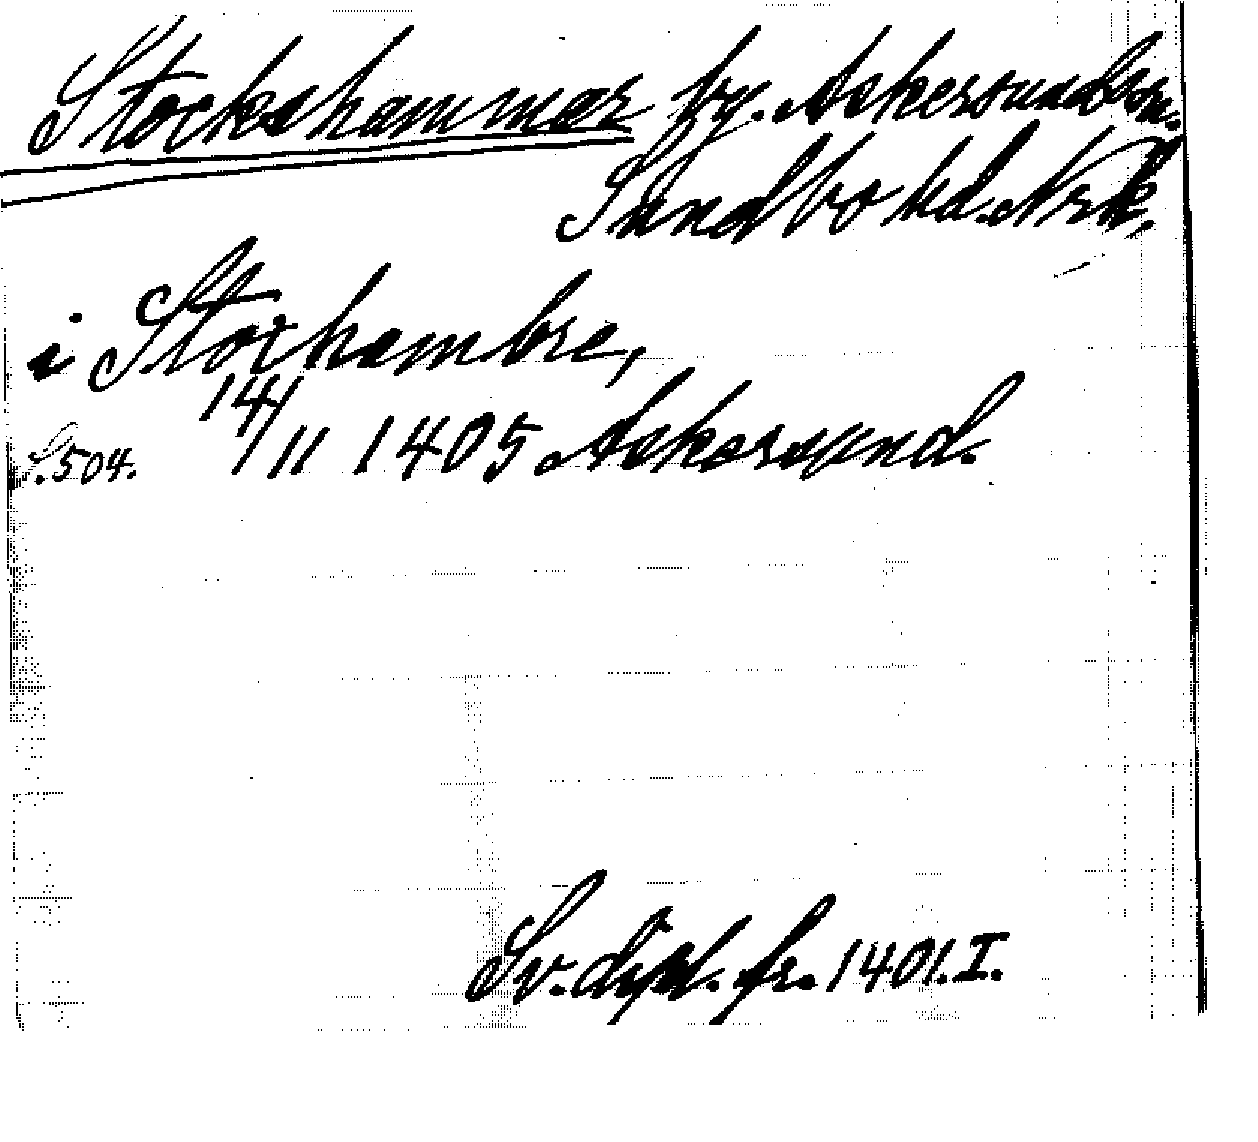 Stockshammar by. Askersunds sn.
Sundbo hd. Nrk.
i Storhambre,
14/11 1405 Askersund.
S. 504.
Sv. dipl. fr. 1401. I.